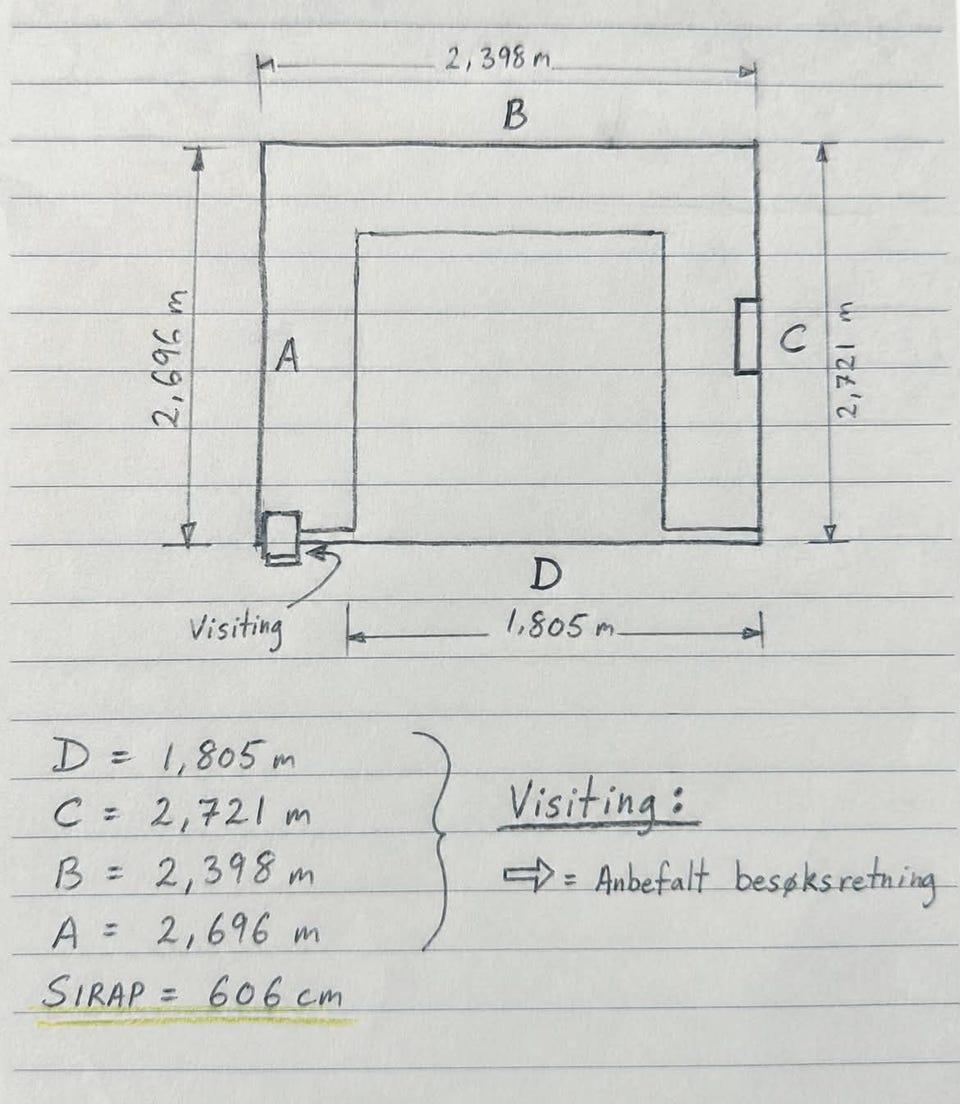 2,398 m
B
2,696 m
A
C
2,721 m
D
Visiting
1,805 m
D = 1,805 m
C = 2,721 m
B = 2,398 m
A = 2,696 m
SIRAP = 606 cm
Visiting:
⇨ = Anbefalt besøksretning